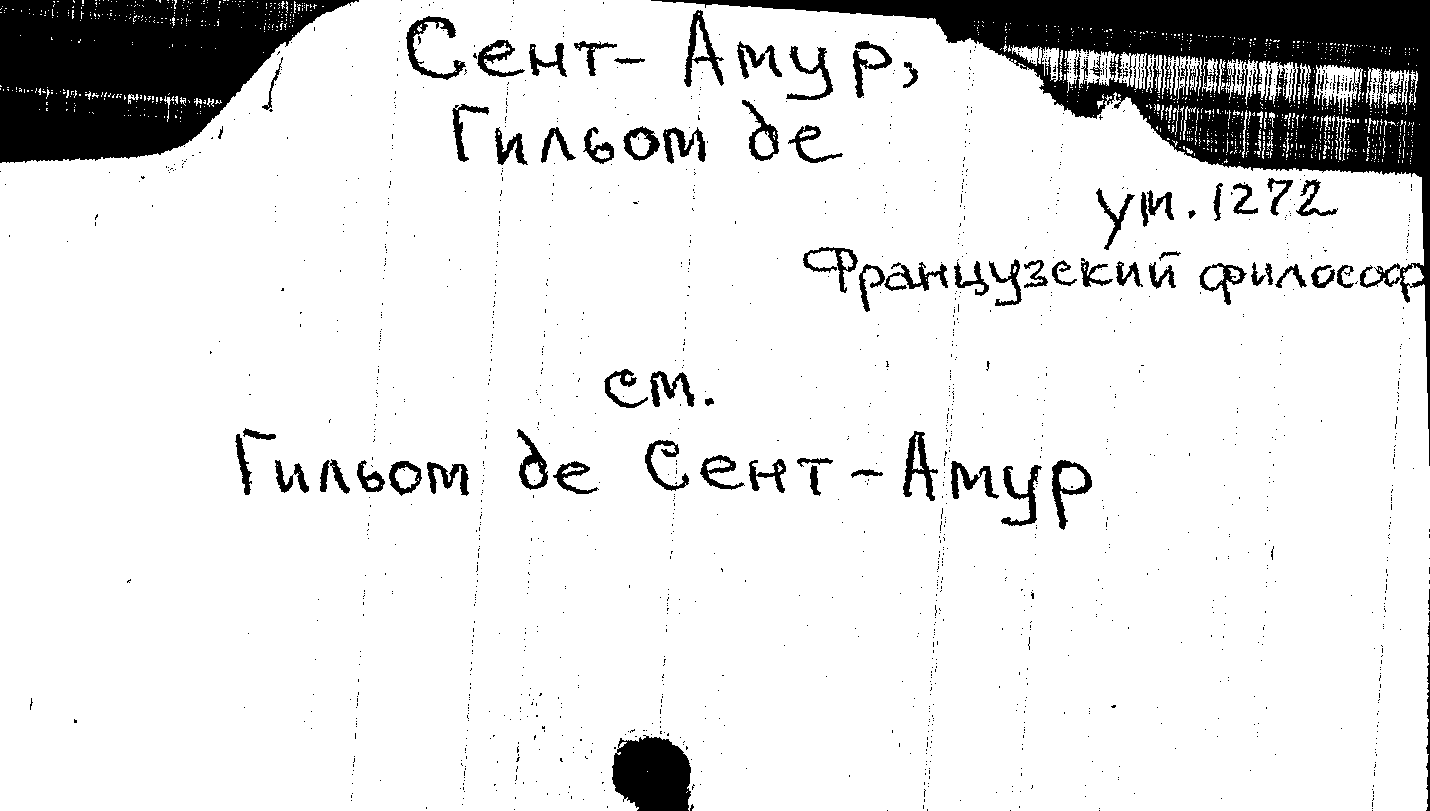 Сент-Амур,
Гильом де
ум. 1272
Французский философ
см.
Гильом де Сент-Амур